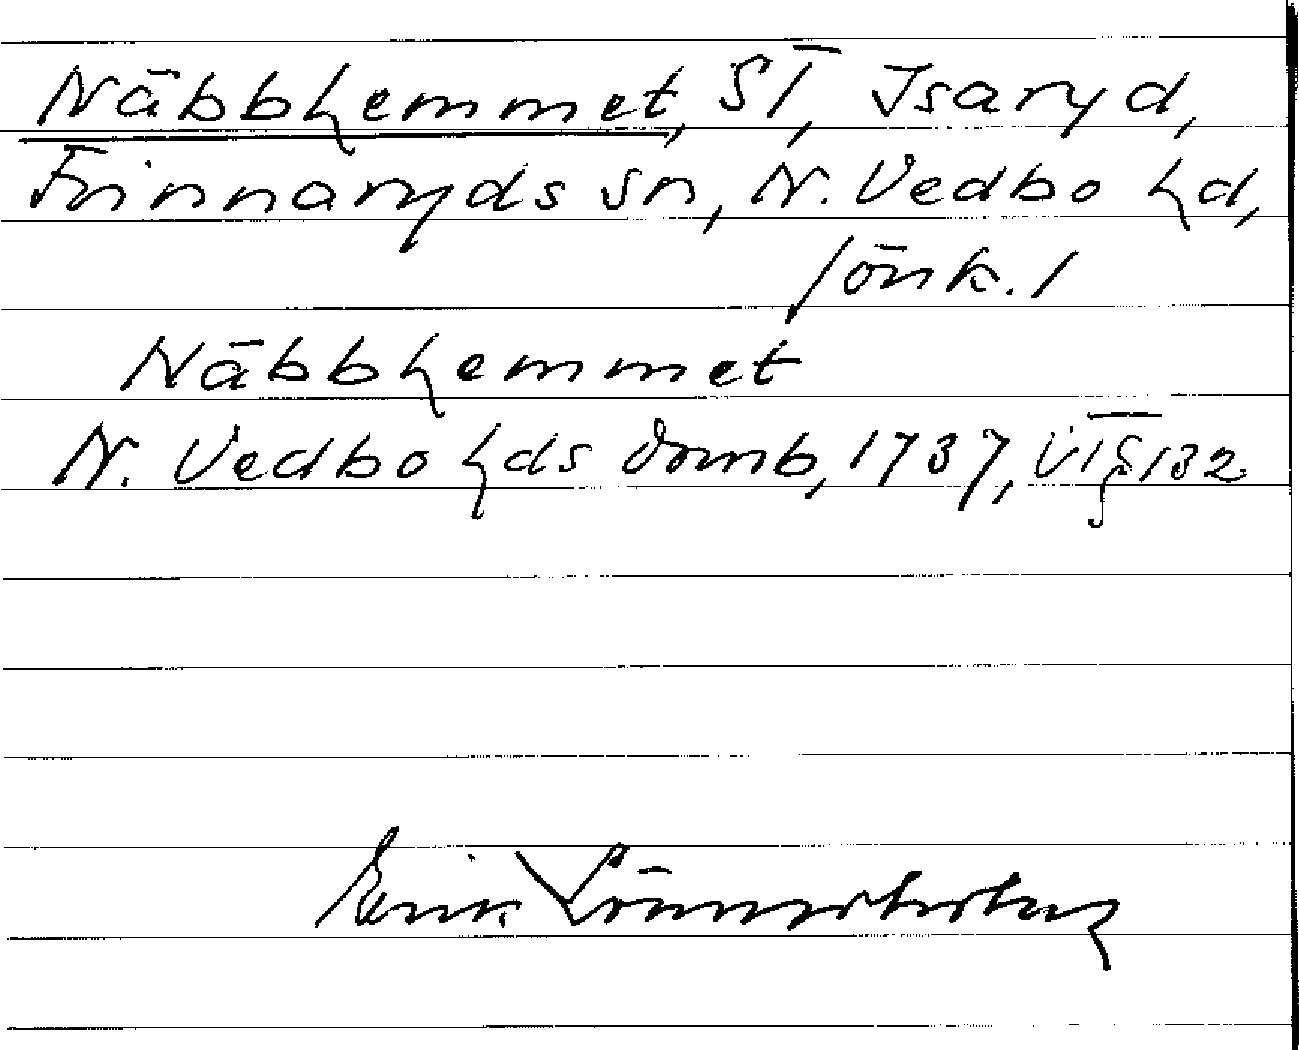 Näbbhemmet, St, Isaryd,
Frinnaryds sn, N. Vedbo hd,
Jönk. l
Näbbhemmet
N. Vedbo hds domb, 1737, VT § 132
Erik